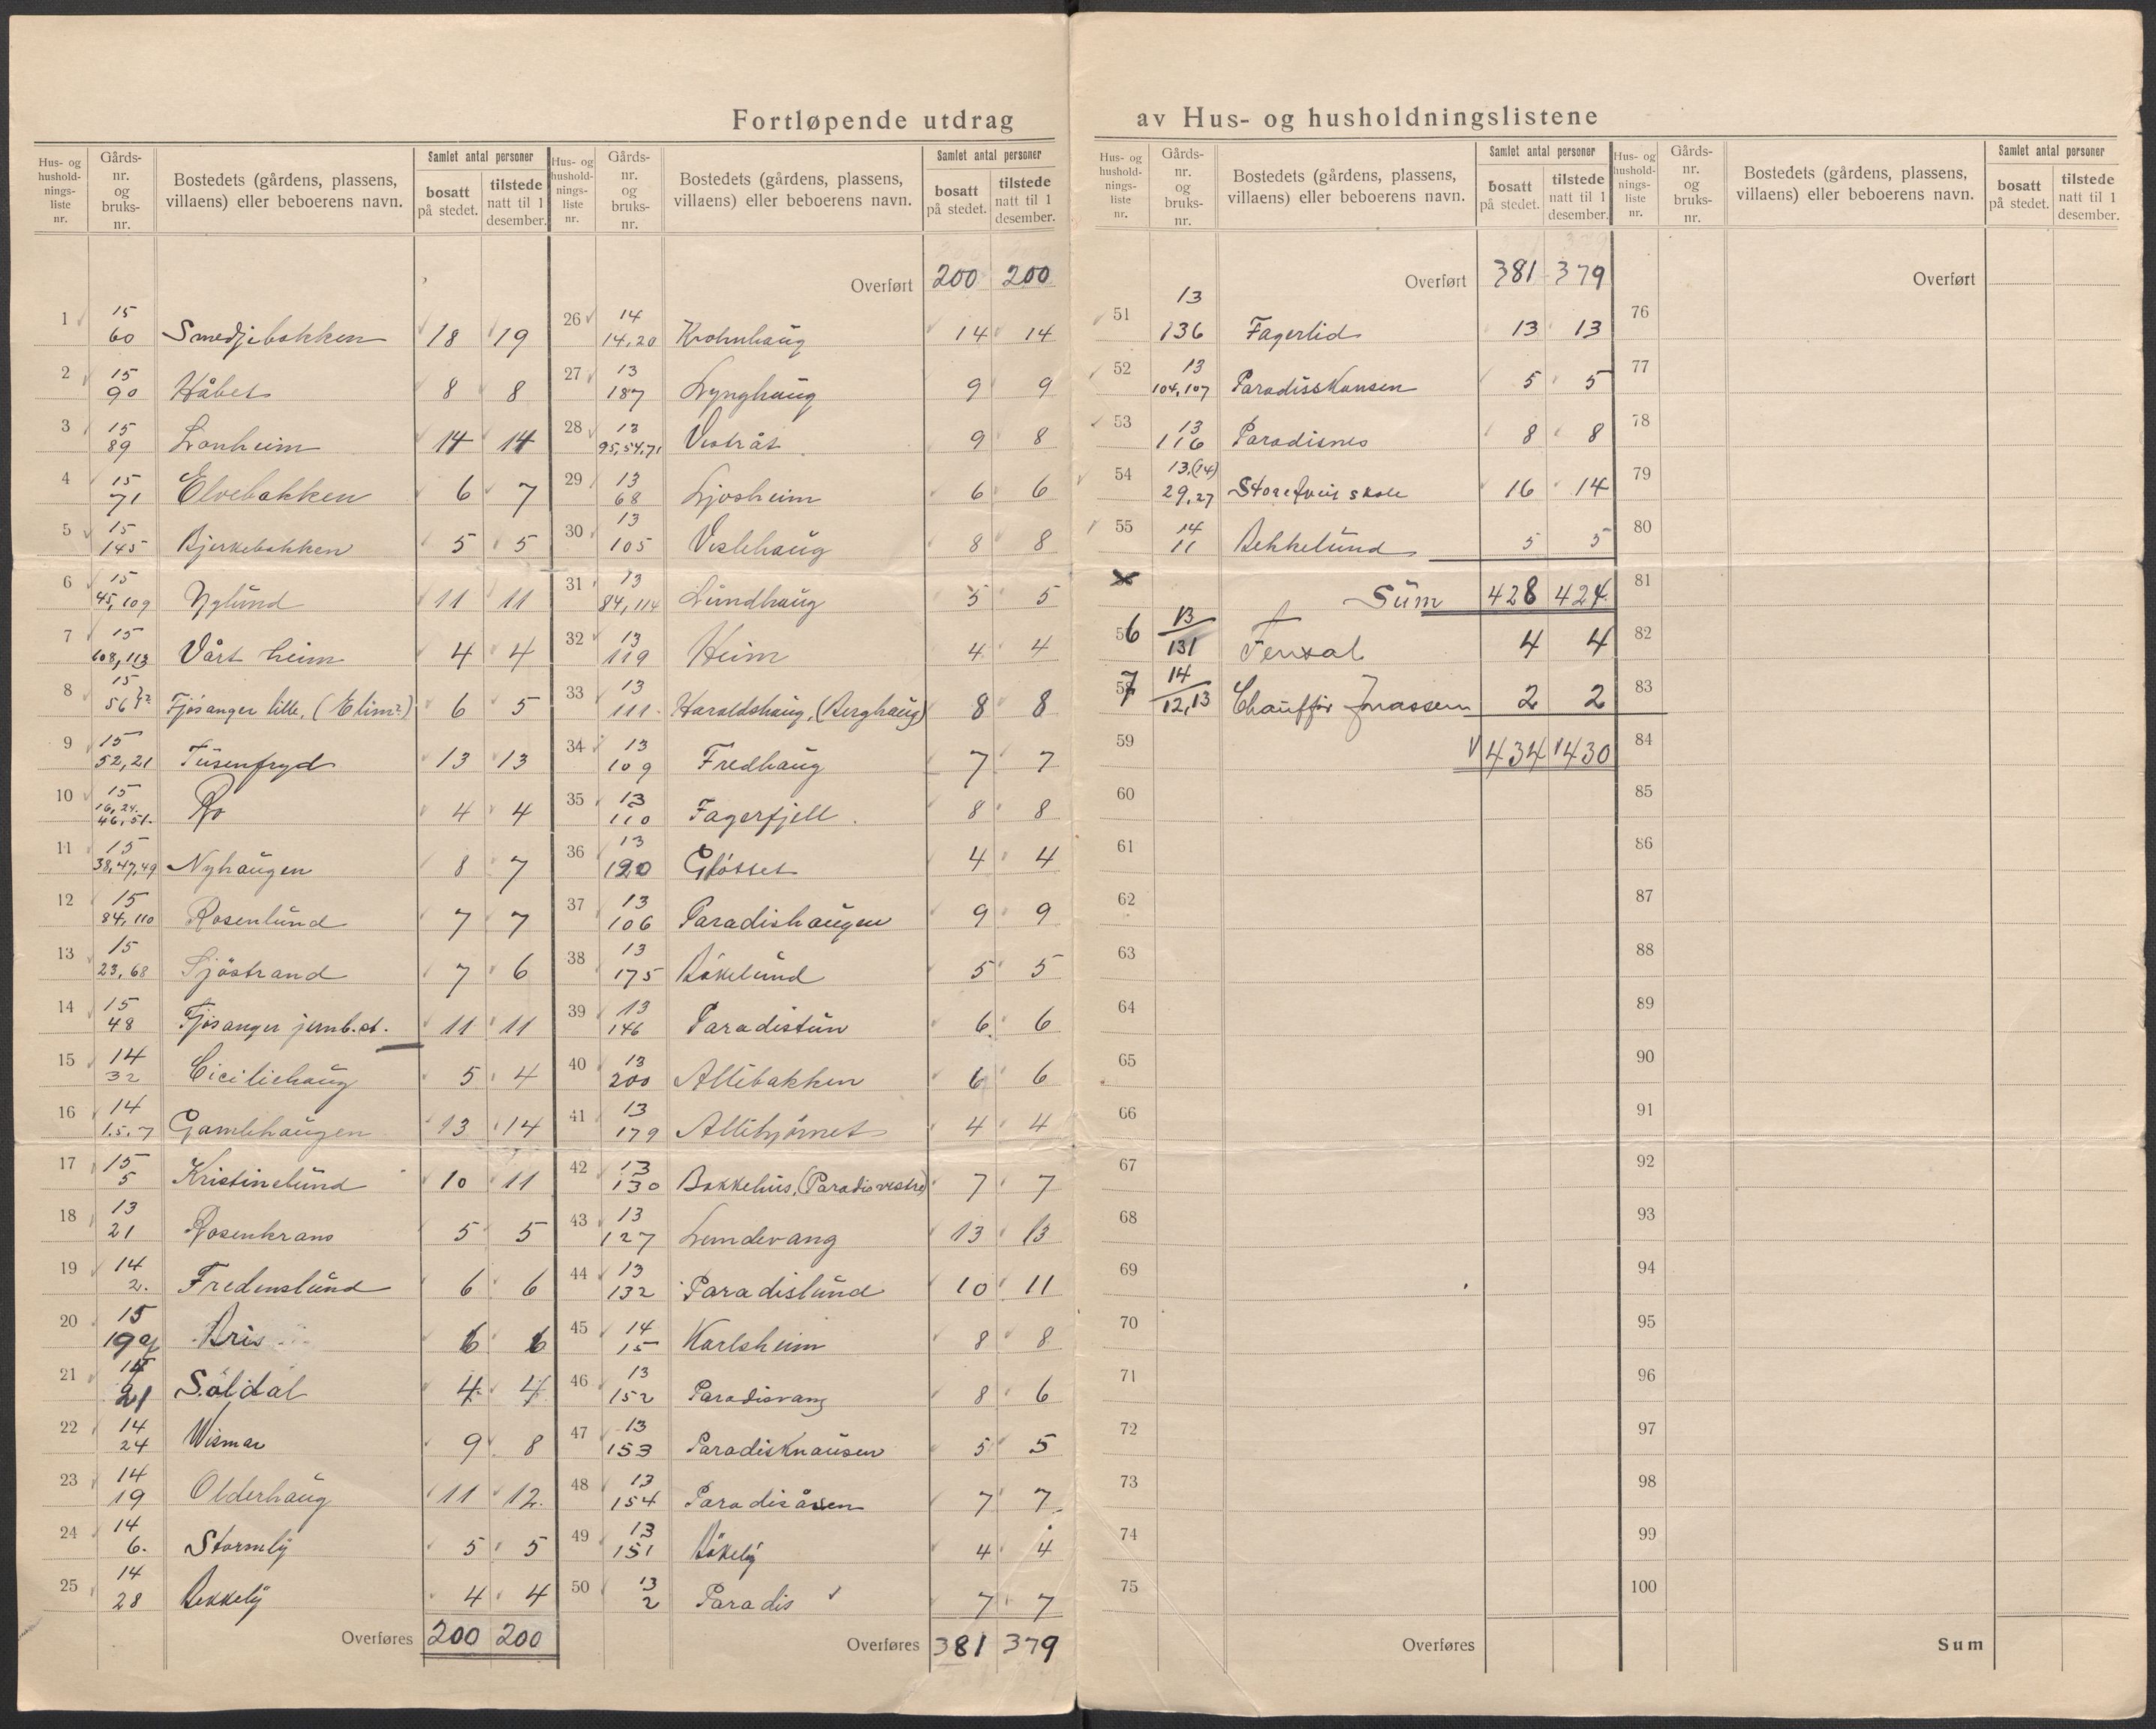 Fortløpende utdrag av Hus- og husholdningslistene
Hus- og husholdnings-liste nr. | Gårds-nr. og bruks-nr. | Bostedets (gårdens, plassens, villaens) eller beboerens navn. | Samlet antal personer | bosatt på stedet. | tilstede natt til 1 desember.
1 15 60 Smedjebakken 18 19
2 15 90 Håbet 8 8
3 15 89 Lonheim 14 14
4 15 71 Elvebakken 6 7
5 15 145 Bjerkebakken 5 5
6 15 45, 109 Nylund 11 11
7 15 108, 113 Vårt heim 4 4
8 15 56 Fjøsanger lille, (Elim?) 6 5
9 15 52, 21 Tusenfryd 13 13
10 15 16, 24. 46, 51. Ro 4 4
11 15 38, 47, 49 Nyhaugen 8 7
12 15 84, 110 Rosenlund 7 7
13 15 23, 68 Sjöstrand 7 6
14 15 48 Fjøsanger jernb.st. 11 11
15 14 32 Ciciliehaug 5 4
16 14 1. 5. 7 Gamlehaugen 13 14
17 15 5 Kristinelund 10 11
18 13 21 Rosenkrans 5 5
19 14 2. Fredenslund 6 6
20 15 19 Bris 6 6
21 14 21 Söldal 4 4
22 14 24 Wismar 9 8
23 14 19 Olderhaug 11 12.
24 14 6. Stormly 5 5
25 14 28 Bekkely 4 4
Overføres 200 200
Hus- og husholdnings-liste nr. | Gårds-nr. og bruks-nr. | Bostedets (gårdens, plassens, villaens) eller beboerens navn. | Samlet antal personer | bosatt på stedet. | tilstede natt til 1 desember.
Overført 200 200
26 14 14, 20 Krohnhaug 14 14
27 13 187 Lynghaug 9 9
28 13 95, 54, 71 Vestråt 9 8
29 13 68 Ljosheim 6 6
30 13 105 Veslehaug 8 8
31 13 84, 114 Lundhaug 5 5
32 13 119 Heim 4 4
33 13 111. Haraldshaug, (Berghaug) 8 8
34 13 109 Fredhaug 7 7
35 13 110 Fagerfjell. 8 8
36 13 120 Gløtset 4 4
37 13 106 Paradishaugen 9 9
38 13 175 Bökelund 5 5
39 13 146 Paradistun 6. 6
40 13 200 Allébakken 6 6
41 13 179 Alléhjörnet 4 4
42 13 130 Bakkehus, (Paradis vestre) 7 7
43 13 127 Lundevang 13 13
44 13 132 Paradislund 10 11
45 14 15 Karlsheim 8 8
46 13 152 Paradisvang 8 6
47 13 153 Paradisknausen 5 5
48 13 154 Paradisåsen 7 7
49 13 151 Bökely 4 4
50 13 2 Paradis 7 7
Overføres 381 379
Hus- og husholdnings-liste nr. | Gårds-nr. og bruks-nr. | Bostedets (gårdens, plassens, villaens) eller beboerens navn. | Samlet antal personer | bosatt på stedet. | tilstede natt til 1 desember.
Overført 381 379
51 13 136 Fagerlid 13 13
52 13 104, 107 Paradisskansen 5 5
53 13 116 Paradisnes 8 8
54 13, (14) 29, 27 Storetveit skole 16 14
55 14 11 Bekkelund 5 5
Sum 428 424
56 13 131 Fensal 4 4
57 14 12, 13 Chauffør Jonassen 2 2
59 434 430
60
61
62
63
64
65
66
67
68
69
70
71
72
73
74
75
Overføres
Hus- og husholdnings-liste nr. | Gårds-nr. og bruks-nr. | Bostedets (gårdens, plassens, villaens) eller beboerens navn. | Samlet antal personer | bosatt på stedet. | tilstede natt til 1 desember.
Overført
76
77
78
79
80
81
82
83
84
85
86
87
88
89
90
91
92
93
94
95
96
97
98
99
100
Sum